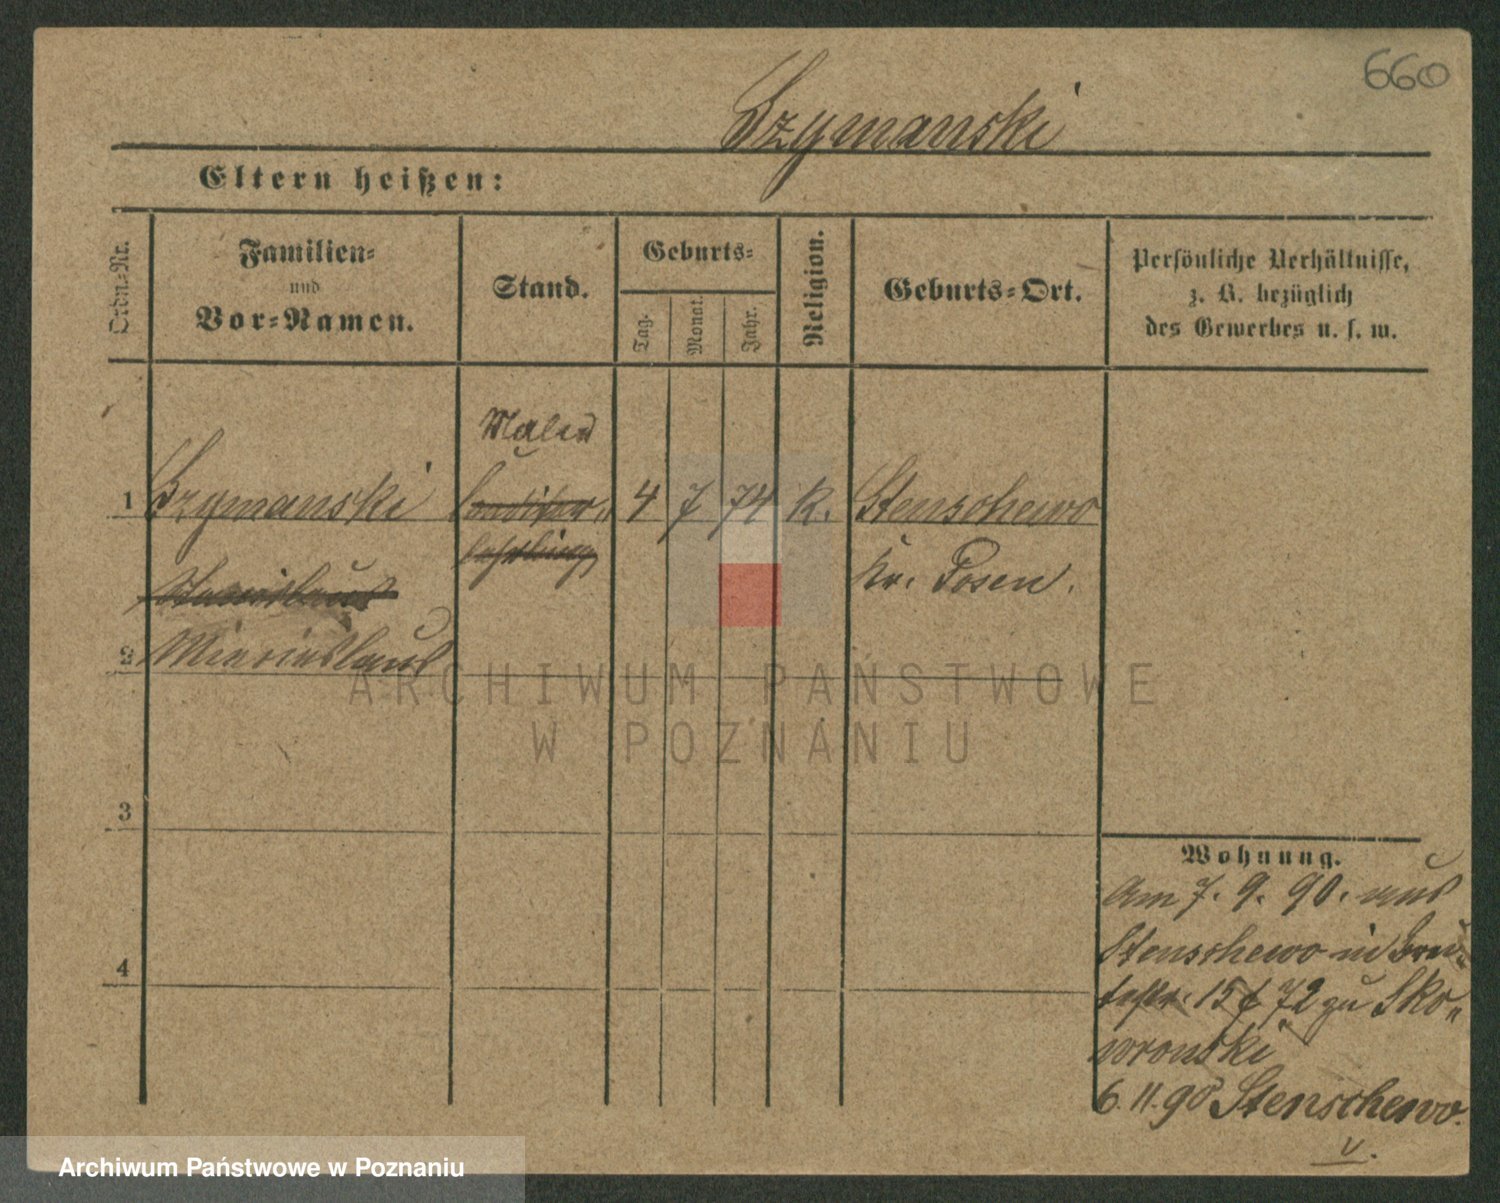 660
Szymanski
Eltern heißen:
Ordn.-Nr.
Familien-
und
Vor-Namen.
Stand.
Geburts-
Tag.
Monat.
Jahr.
Religion.
Geburts-Ort.
Persönliche Verhältnisse,
z. B. bezüglich
des Gewerbes u. s. w.
Maler
1 Szymanski Conditor- 4 7 74 k. Stenschewo
lehrling
Kr. Posen.
Stanislaus
2 Miecislaus
ARCHIWUM PAŃSTWOWE
W POZNANIU
3
4
Wohnung.
Am 7. 9. 90. aus
Stenschewo in
15/72 zu Sko-
wronski
6. 11. 90 Stenschewo.
v.
Archiwum Państwowe w Poznaniu